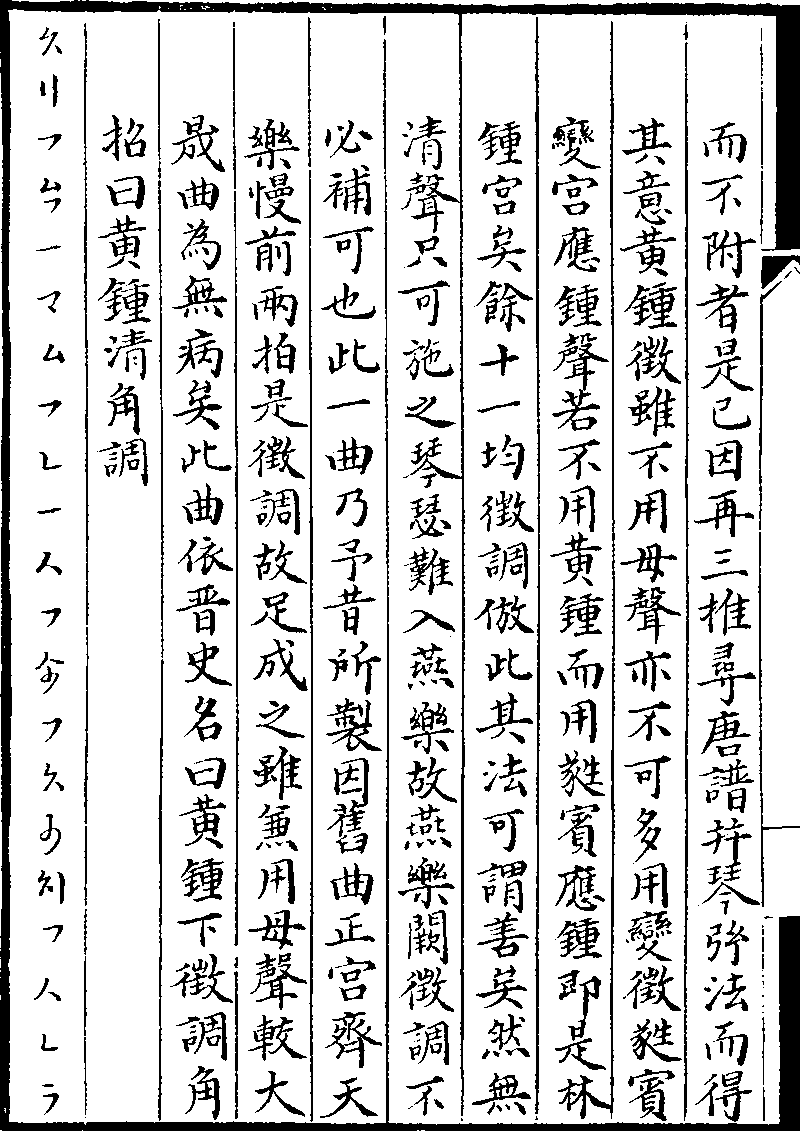 而不附者是已因再三推尋唐譜并琴弦法而得
其意黄鍾徵雖不用母聲亦不可多用變徵蕤賓
變宫應鍾聲若不用黄鍾而用蕤賓應鍾即是林
鍾宫矣餘十一均徵調倣此其法可謂善矣然無
清聲只可施之琴瑟難入燕樂故燕樂闕徵調不
必補可也此一曲乃予昔所製因舊曲正宫齊天
樂慢前兩拍是徵調故足成之雖兼用母聲較大
晟曲為無病矣此曲依晋史名曰黄鍾下徵調角
招曰黄鍾清角調